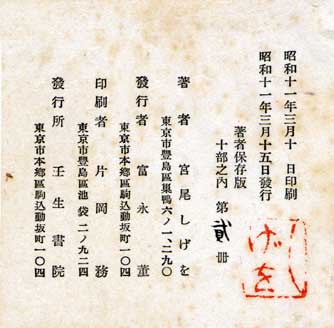 昭和十一年三月十　日印刷
昭和十一年三月十五日發行
著者保存版
十部之内　第貳册
著者　宮尾しげを
東京市豐島區巣鴨六ノ一一二九〇
發行者　富永董
東京市本鄉區駒込動坂町一〇四
印刷者　片岡務
東京市豐島區池袋二ノ九二四
發行所　壬生書院
東京市本鄉區駒込動坂町一〇四
しげを